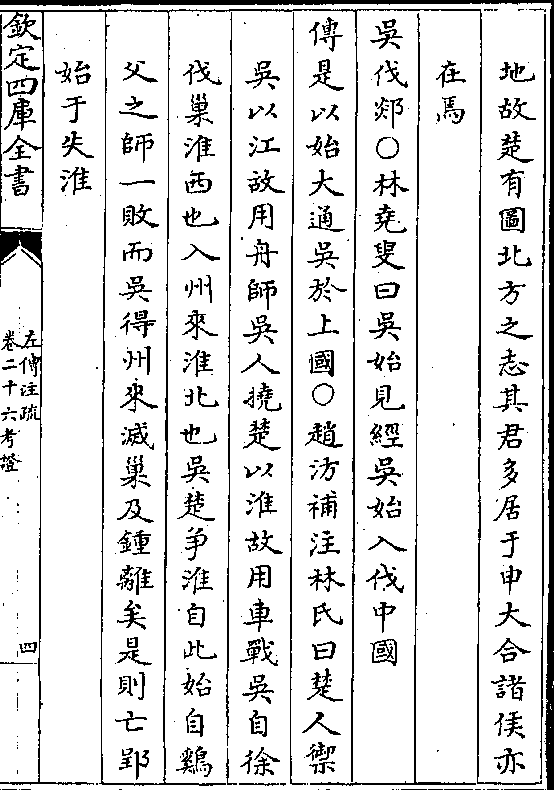 地故楚有圖北方之志其君多居于申大合諸侯亦
在焉
吳伐郯○林堯叟曰吳始見經吳始入伐中國
傳是以始大通吳於上國○趙汸補注林氏曰楚人禦
吳以江故用舟師吳人撓楚以淮故用車戰吳自徐
伐巢淮西也入州來淮北也吳楚爭淮自此始自鷄
父之師一敗而吳得州來滅巢及鍾離矣是則亡郢
始于失淮
欽定四庫全書
左傳注疏
卷二十六考證
四